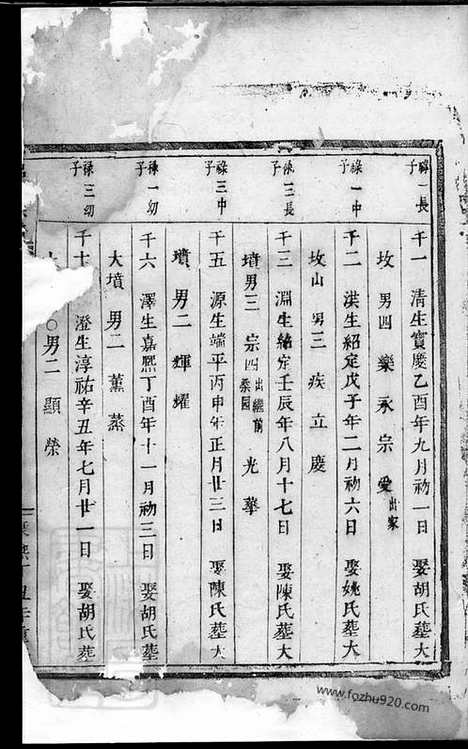 祿一長子
千一　清生寶慶乙酉年九月初一日　娶胡氏墓大
坟　男四　樂　永　宗　愛出家
祿一中子
千二　洪生紹定戊子年二月初六日　娶姚氏墓大
坟山　男三　疾　立　慶
祿三長子
千三　淵生紹定壬辰年八月十七日　娶陳氏墓大
墳男三　宗四出繼前桑園　光　華
祿三中子
千五　源生端平丙申年正月廿三日　娶陳氏墓大
墳　男二　輝　耀
祿一幼子
千六　澤生嘉熙丁酉年十一月初三日　娶胡氏墓
大墳　男二　薰　蒸
祿三幼子
千十　澄生淳祐辛丑年七月廿一日　娶胡氏墓
男二　顯　榮
www.fozhu920.com